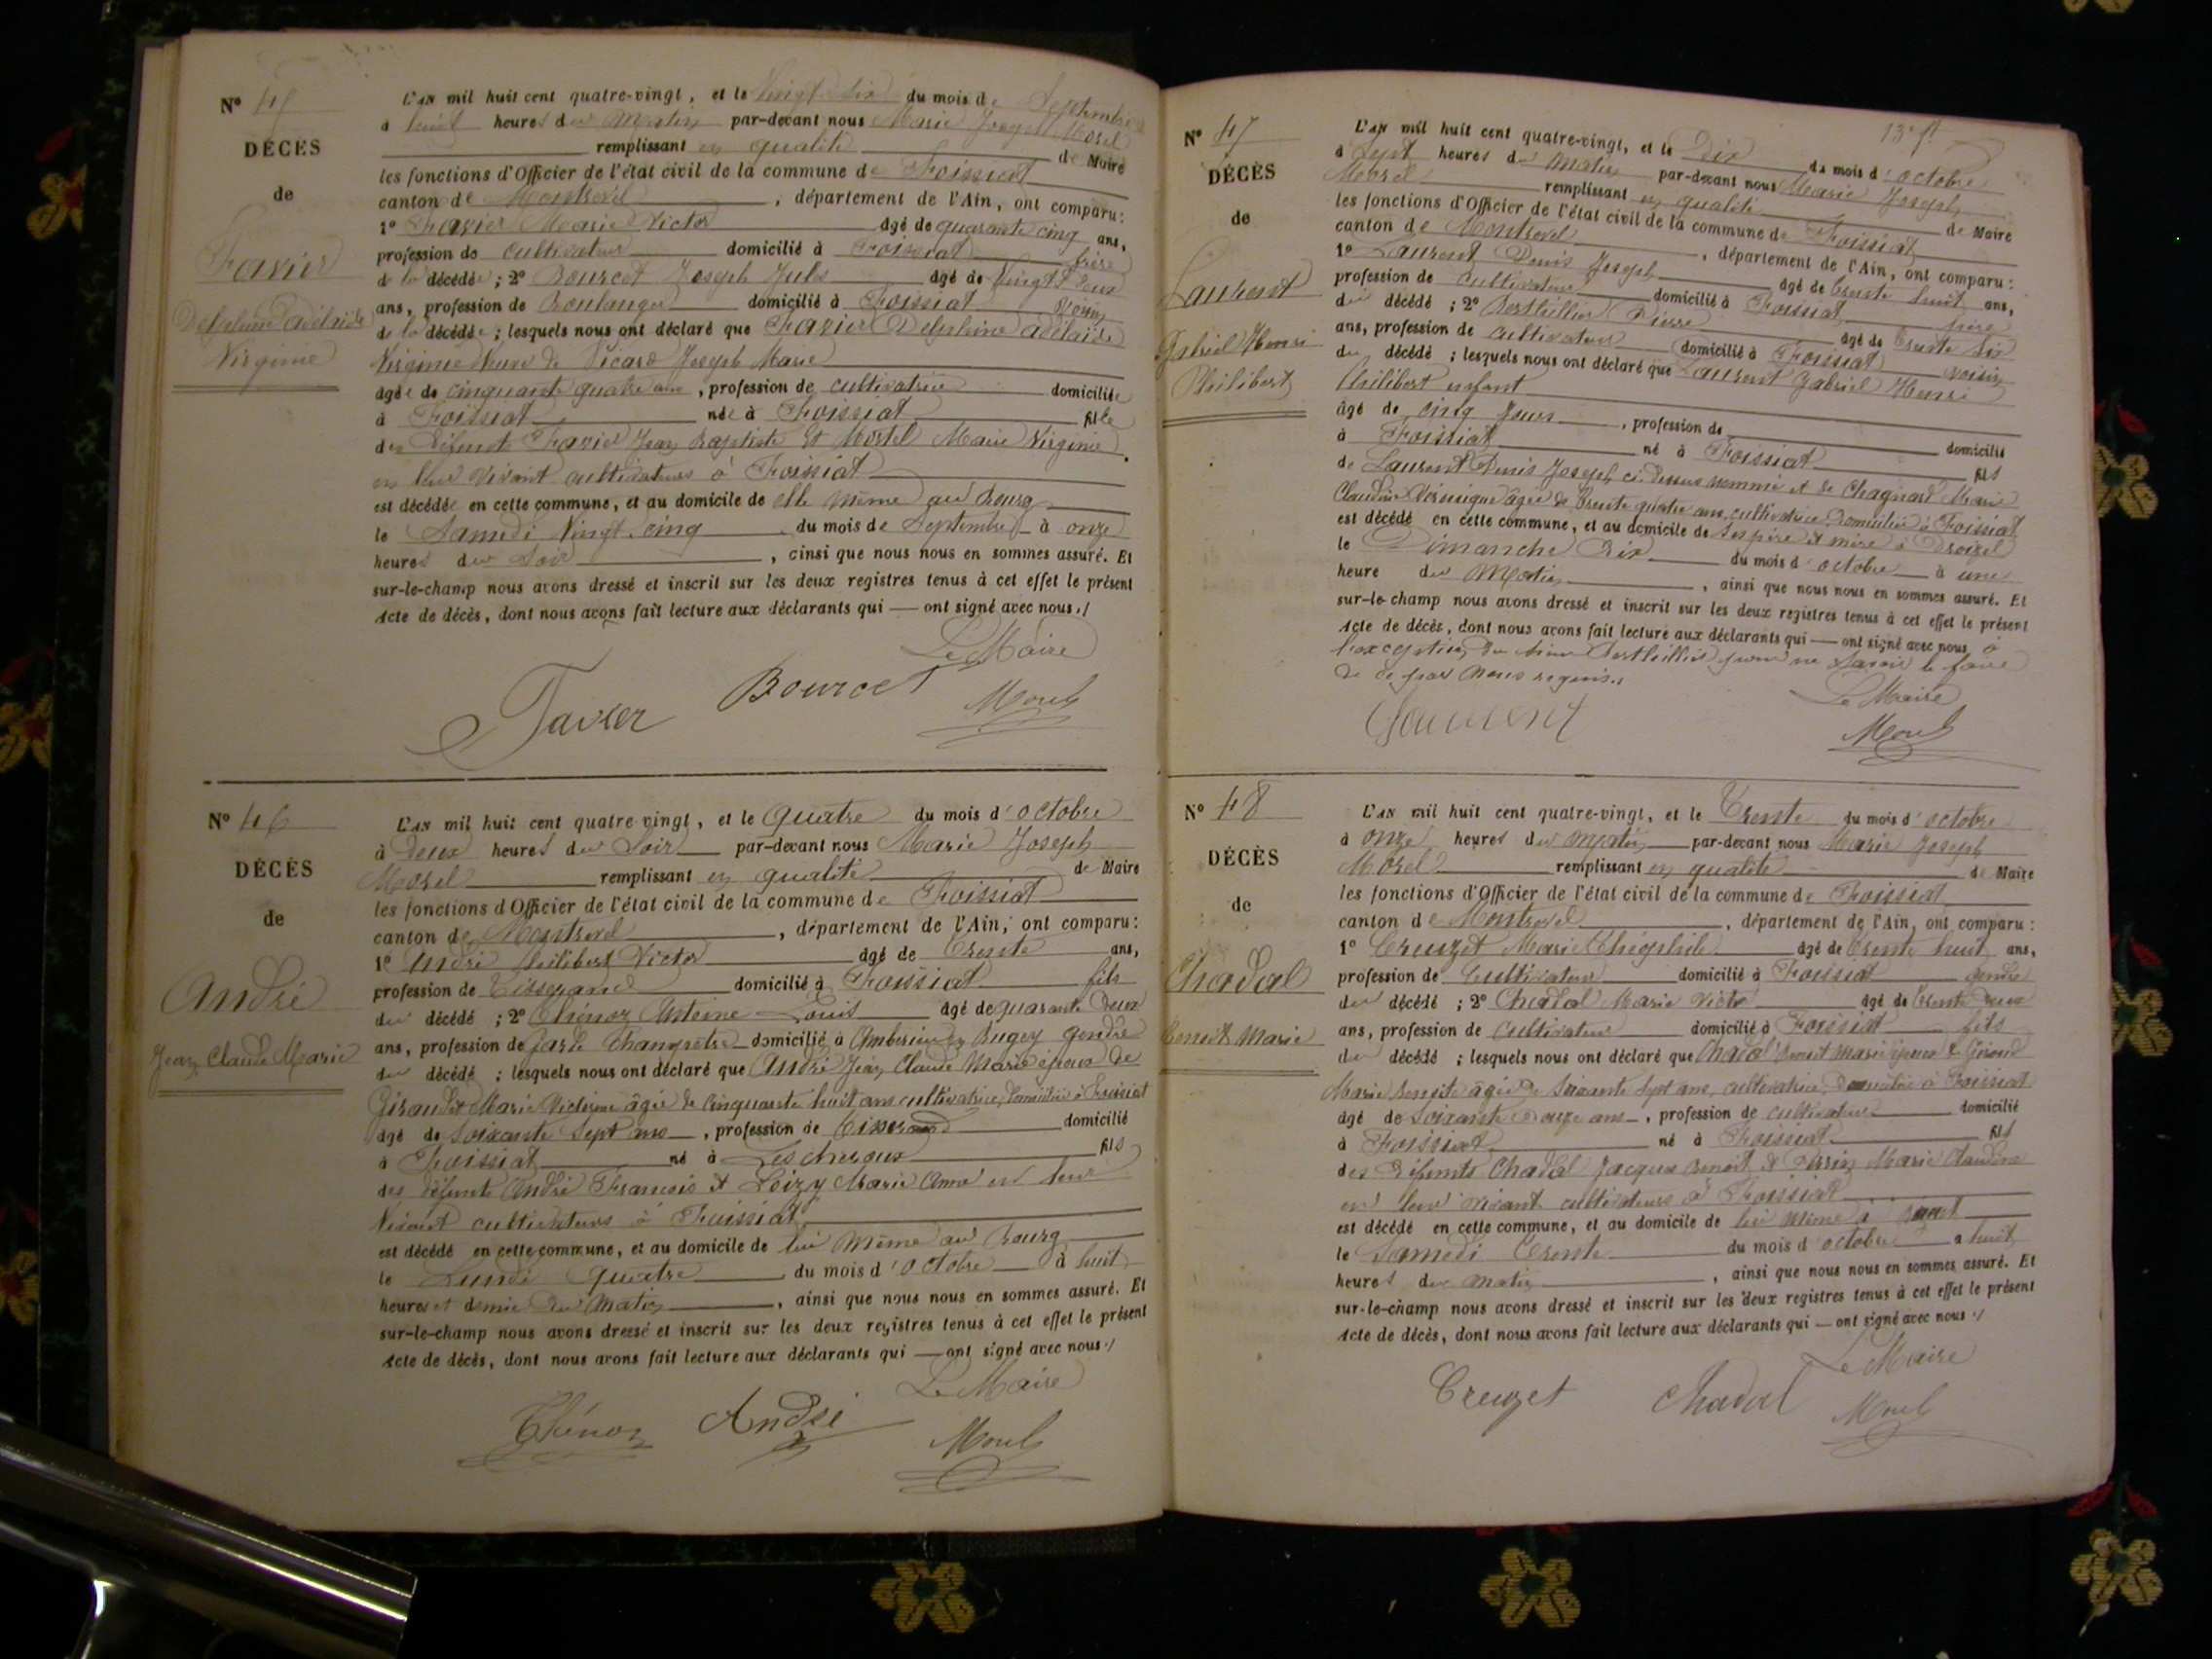 N° 45
DÉCÈS
de
Favier
Delphine Adélaïde
Virginie
L'AN mil huit cent quatre-vingt, et le Vingt six du mois de Septembre
à huit heures du Matin par-devant nous Marie Joseph Morel
remplissant en qualité de Maire
les fonctions d'Officier de l'état civil de la commune de Foissiat
canton de Montrevel, département de l'Ain, ont comparu :
1° Favier Marie Victor âgé de quarante cinq ans,
profession de cultivateur domicilié à Foissiat frère
de la décédée ; 2° Bourcet Joseph Jules âgé de Vingt Deux
ans, profession de Boulanger domicilié à Foissiat Voisin
de la décédée ; lesquels nous ont déclaré que Favier Delphine adélaïde
Virginie Veuve de Picard Joseph Marie
âgée de cinquante quatre ans, profession de cultivatrice domiciliée
à Foissiat née à Foissiat fille
des Défunts Favier Jean Baptiste et Morel Marie Virginie
en leur Vivant cultivateurs à Foissiat
est décédée en cette commune, et au domicile de elle même au Bourg
le Samedi Vingt-cinq du mois de Septembre à onze
heures du Soir, ainsi que nous nous en sommes assuré. Et
sur-le-champ nous avons dressé et inscrit sur les deux registres tenus à cet effet le présent
Acte de décès, dont nous avons fait lecture aux déclarants qui — ont signé avec nous ./
Le Maire
Favier Bourcet Morel
N° 46
DÉCÈS
de
André
Jean Claude Marie
L'AN mil huit cent quatre-vingt, et le Quatre du mois d'octobre
à Deux heures du Soir par-devant nous Marie Joseph
Morel remplissant en qualité de Maire
les fonctions d'Officier de l'état civil de la commune de Foissiat
canton de Montrevel, département de l'Ain, ont comparu :
1° André Philibert Victor âgé de Trente ans,
profession de Tisserand domicilié à Foissiat fils
du décédé ; 2° Thénoz Antoine Louis âgé de quarante Deux
ans, profession de garde Champêtre domicilié à Ambérieu en Bugey gendre
du décédé ; lesquels nous ont déclaré que André Jean Claude Marie époux de
Giraudet Marie Victorine âgée de Cinquante huit ans cultivatrice, Domiciliée à Foissiat
âgé de Soixante Sept ans, profession de Tisserand domicilié
à Foissiat né à Lescheroux fils
des Défunts André François et Loizy Marie Anne en leur
Vivant cultivateurs à Foissiat
est décédé en cette commune, et au domicile de lui même au Bourg
le Lundi Quatre du mois d'octobre à huit
heures et demie du Matin, ainsi que nous nous en sommes assuré. Et
sur-le-champ nous avons dressé et inscrit sur les deux registres tenus à cet effet le présent
Acte de décès, dont nous avons fait lecture aux déclarants qui — ont signé avec nous ./
Le Maire
Thénoz André Morel
13e ft
N° 47
DÉCÈS
de
Laurent
Gabriel Henri
Philibert
L'AN mil huit cent quatre-vingt, et le Dix du mois d'octobre
à Sept heures du Matin par-devant nous Marie Joseph
Morel remplissant en qualité de Maire
les fonctions d'Officier de l'état civil de la commune de Foissiat
canton de Montrevel, département de l'Ain, ont comparu :
1° Laurent Denis Joseph âgé de trente huit ans,
profession de Cultivateur domicilié à Foissiat père
du décédé ; 2° Berthillier Pierre âgé de Trente Six
ans, profession de cultivateur domicilié à Foissiat voisin
du décédé ; lesquels nous ont déclaré que Laurent Gabriel Henri
Philibert enfant
âgé de cinq Jours, profession de domicilié
à Foissiat né à Foissiat fils
de Laurent Denis Joseph, ci-Dessus nommé et de Chagnard Marie
Claudine Véronique âgée de Trente quatre ans, cultivatrice, Domiciliée à Foissiat
est décédé en cette commune, et au domicile de Ses père et mère à
le Dimanche Dix du mois d'octobre à une
heure du Matin, ainsi que nous nous en sommes assuré. Et
sur-le-champ nous avons dressé et inscrit sur les deux registres tenus à cet effet le présent
Acte de décès, dont nous avons fait lecture aux déclarants qui — ont signé avec nous à
l'exception du Sieur Berthillier pour ne Savoir le faire
de ce par Nous requis ./
Le Maire
Laurent Morel
N° 48
DÉCÈS
de
Chadal
Benoit Marie
L'AN mil huit cent quatre-vingt, et le Trente du mois d'octobre
à onze heures du Matin par-devant nous Marie Joseph
Morel remplissant en qualité de Maire
les fonctions d'Officier de l'état civil de la commune de Foissiat
canton de Montrevel, département de l'Ain, ont comparu :
1° Creuzet Marie Théophile âgé de trente huit ans,
profession de Cultivateur domicilié à Foissiat gendre
du décédé ; 2° Chadal Marie Victor âgé de trente deux
ans, profession de cultivateur domicilié à Foissiat fils
du décédé ; lesquels nous ont déclaré que Chadal Benoit Marie époux de
Marie Benoite âgée de Soixante Sept ans, cultivatrice, Domiciliée à Foissiat
âgé de Soixante Douze ans, profession de cultivateur domicilié
à Foissiat né à Foissiat fils
des Défunts Chadal Jacques Benoit et Perrin Marie Claudine
en leur vivant cultivateurs à Foissiat
est décédé en cette commune, et au domicile de lui même à
le Samedi Trente du mois d'octobre à huit
heures du Matin, ainsi que nous nous en sommes assuré. Et
sur-le-champ nous avons dressé et inscrit sur les deux registres tenus à cet effet le présent
Acte de décès, dont nous avons fait lecture aux déclarants qui — ont signé avec nous ./
Le Maire
Creuzet Chadal Morel